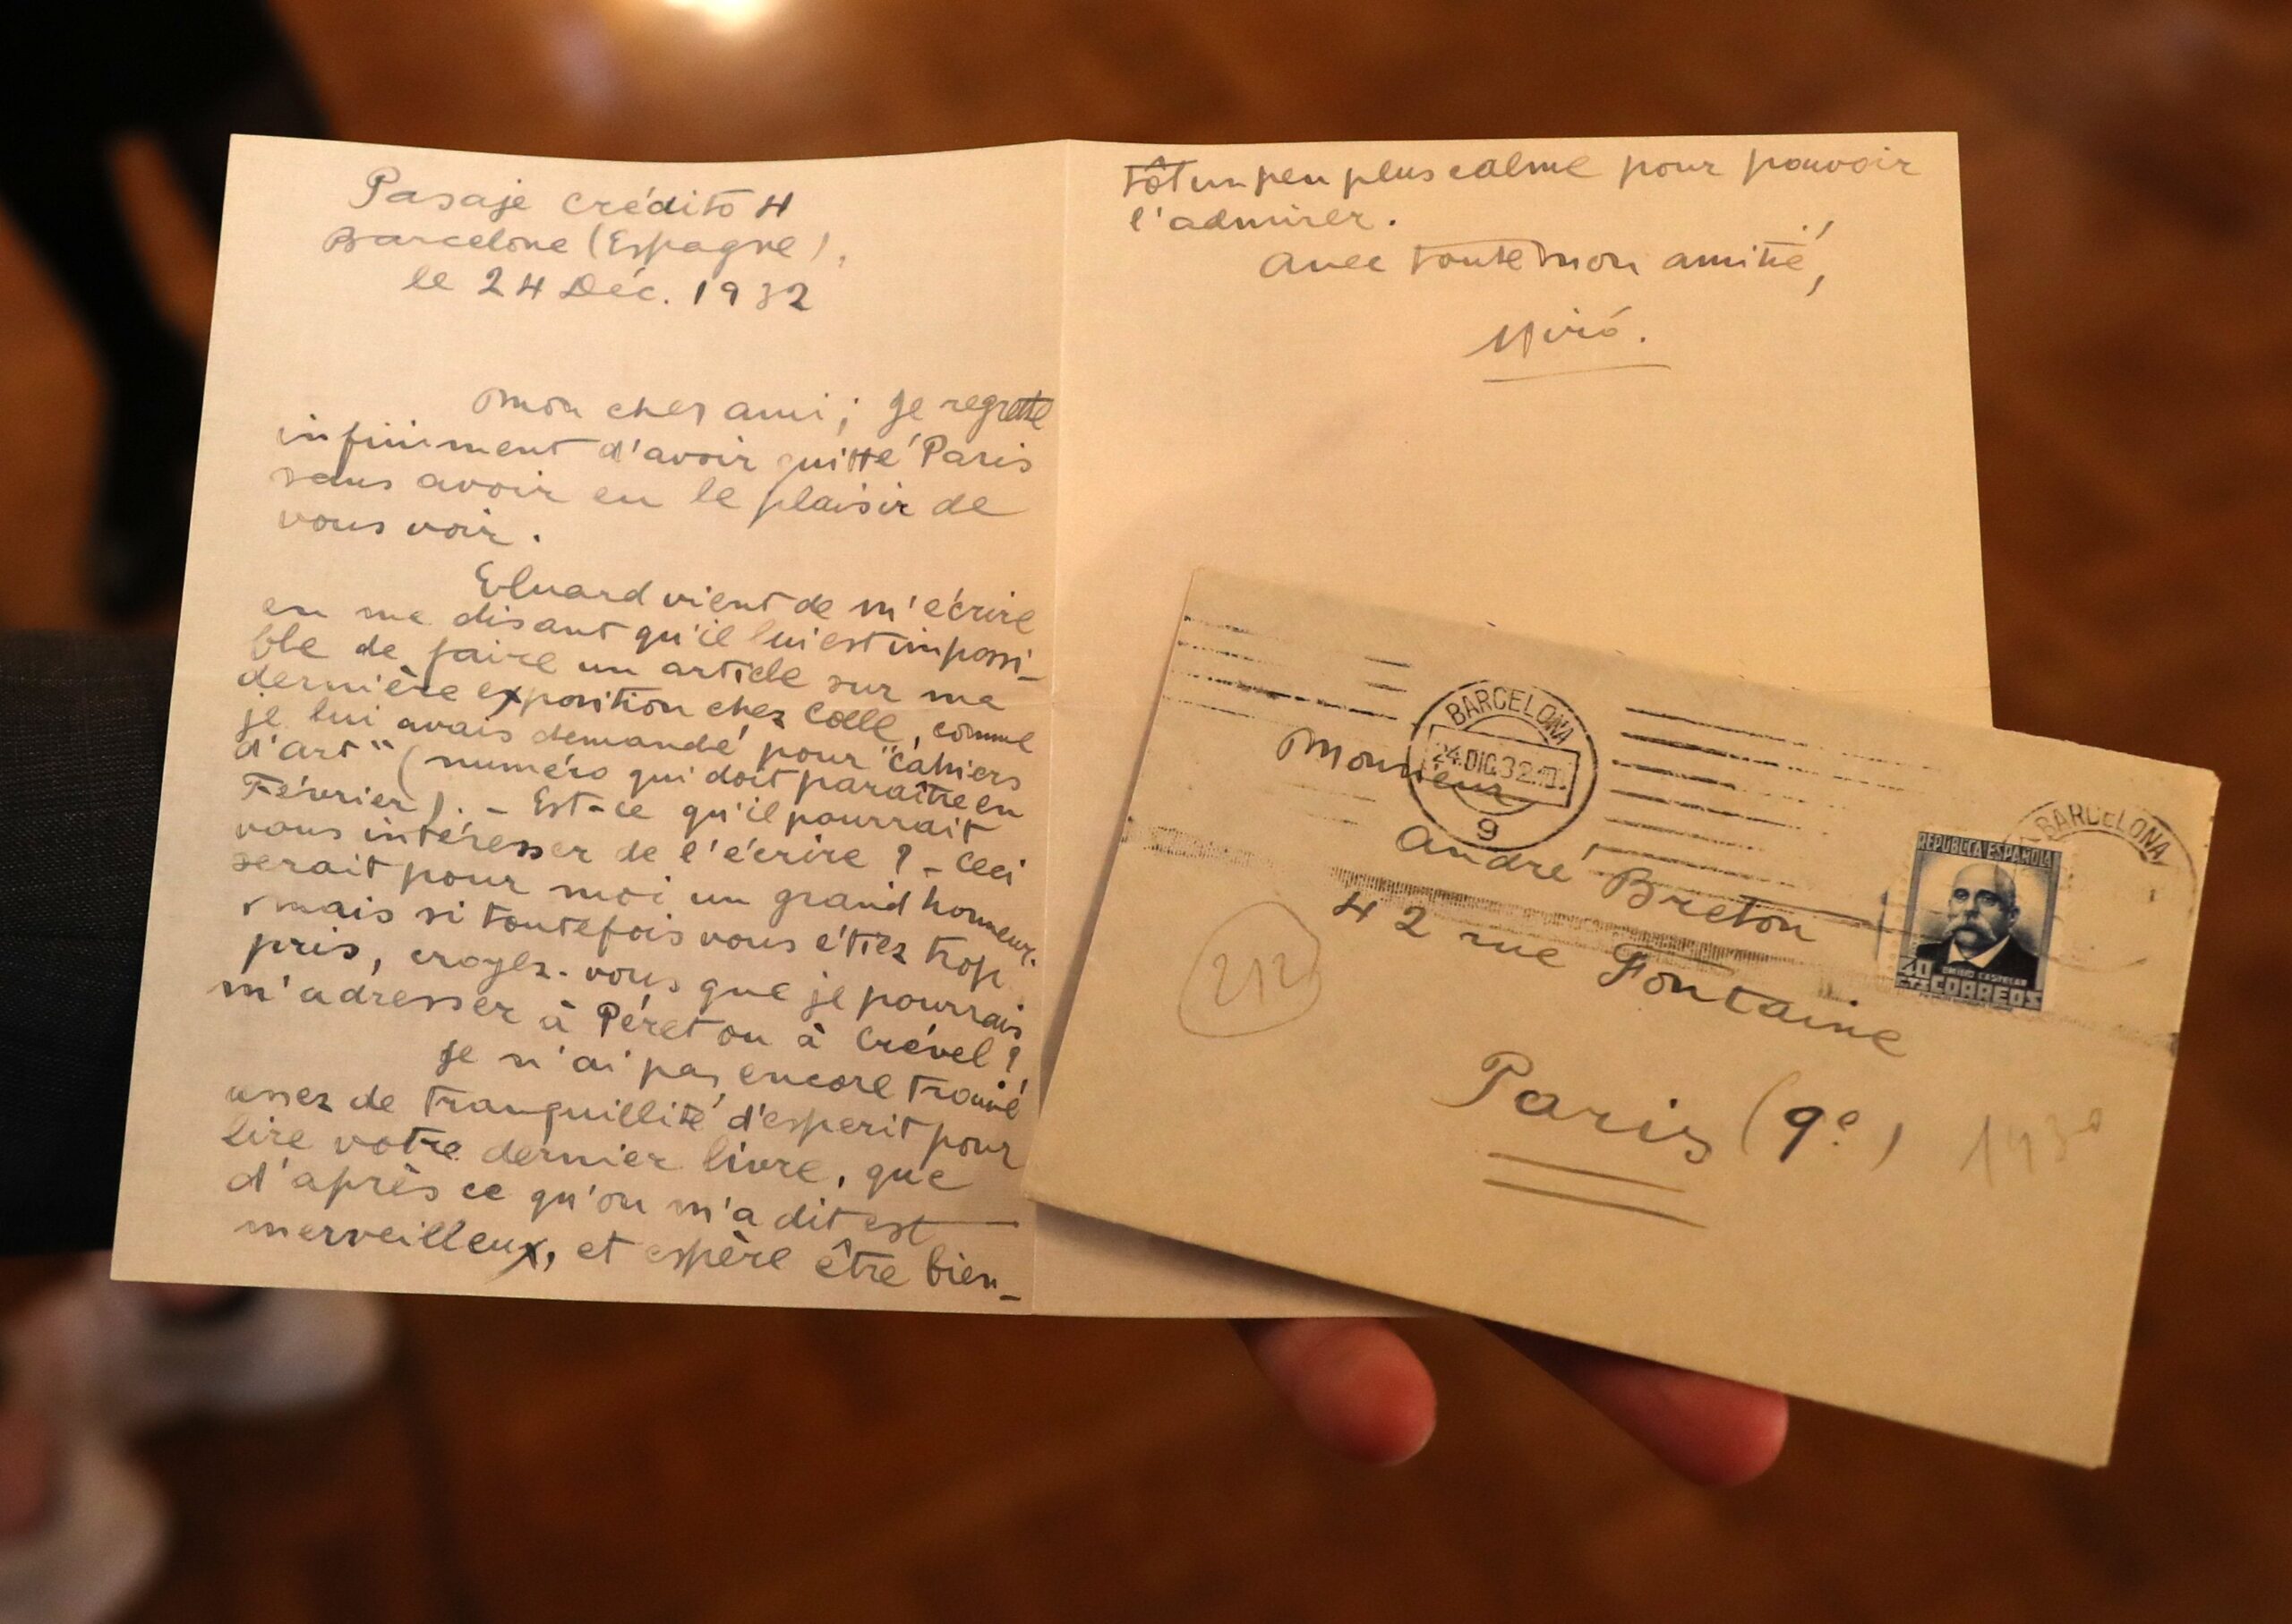 Pasaje Crédito 4
Barcelone (Espagne),
le 24 Déc. 1932
Mon cher ami; je regrette
infiniment d'avoir quitté Paris
sans avoir eu le plaisir de
vous voir.
Eluard vient de m'écrire
en me disant qu'il lui est impossi-
ble de faire un article sur ma
dernière exposition chez Colle, comme
je lui avais demandé pour "Cahiers
d'art" (numéro qui doit paraître en
Février). - Est-ce qu'il pourrait
vous intéresser de l'écrire ? - Ceci
serait pour moi un grand honneur.
mais si toutefois vous étiez trop
pris, croyez-vous que je pourrais
m'adresser à Péret ou à Crével ?
Je n'ai pas encore trouvé
assez de tranquillité d'esperit pour
lire votre dernier livre, que
d'après ce qu'on m'a dit est
merveilleux, et espère être bien-
tôt un peu plus calme pour pouvoir
l'admirer.
Avec toute mon amitié,
Miró.
BARCELONA
24.DIC.32
9
Monsieur
André Breton
42 rue Fontaine
Paris (9e)
212
BARCELONA
REPUBLICA ESPAÑOLA
EMILIO CASTELAR
40 CTS CORREOS